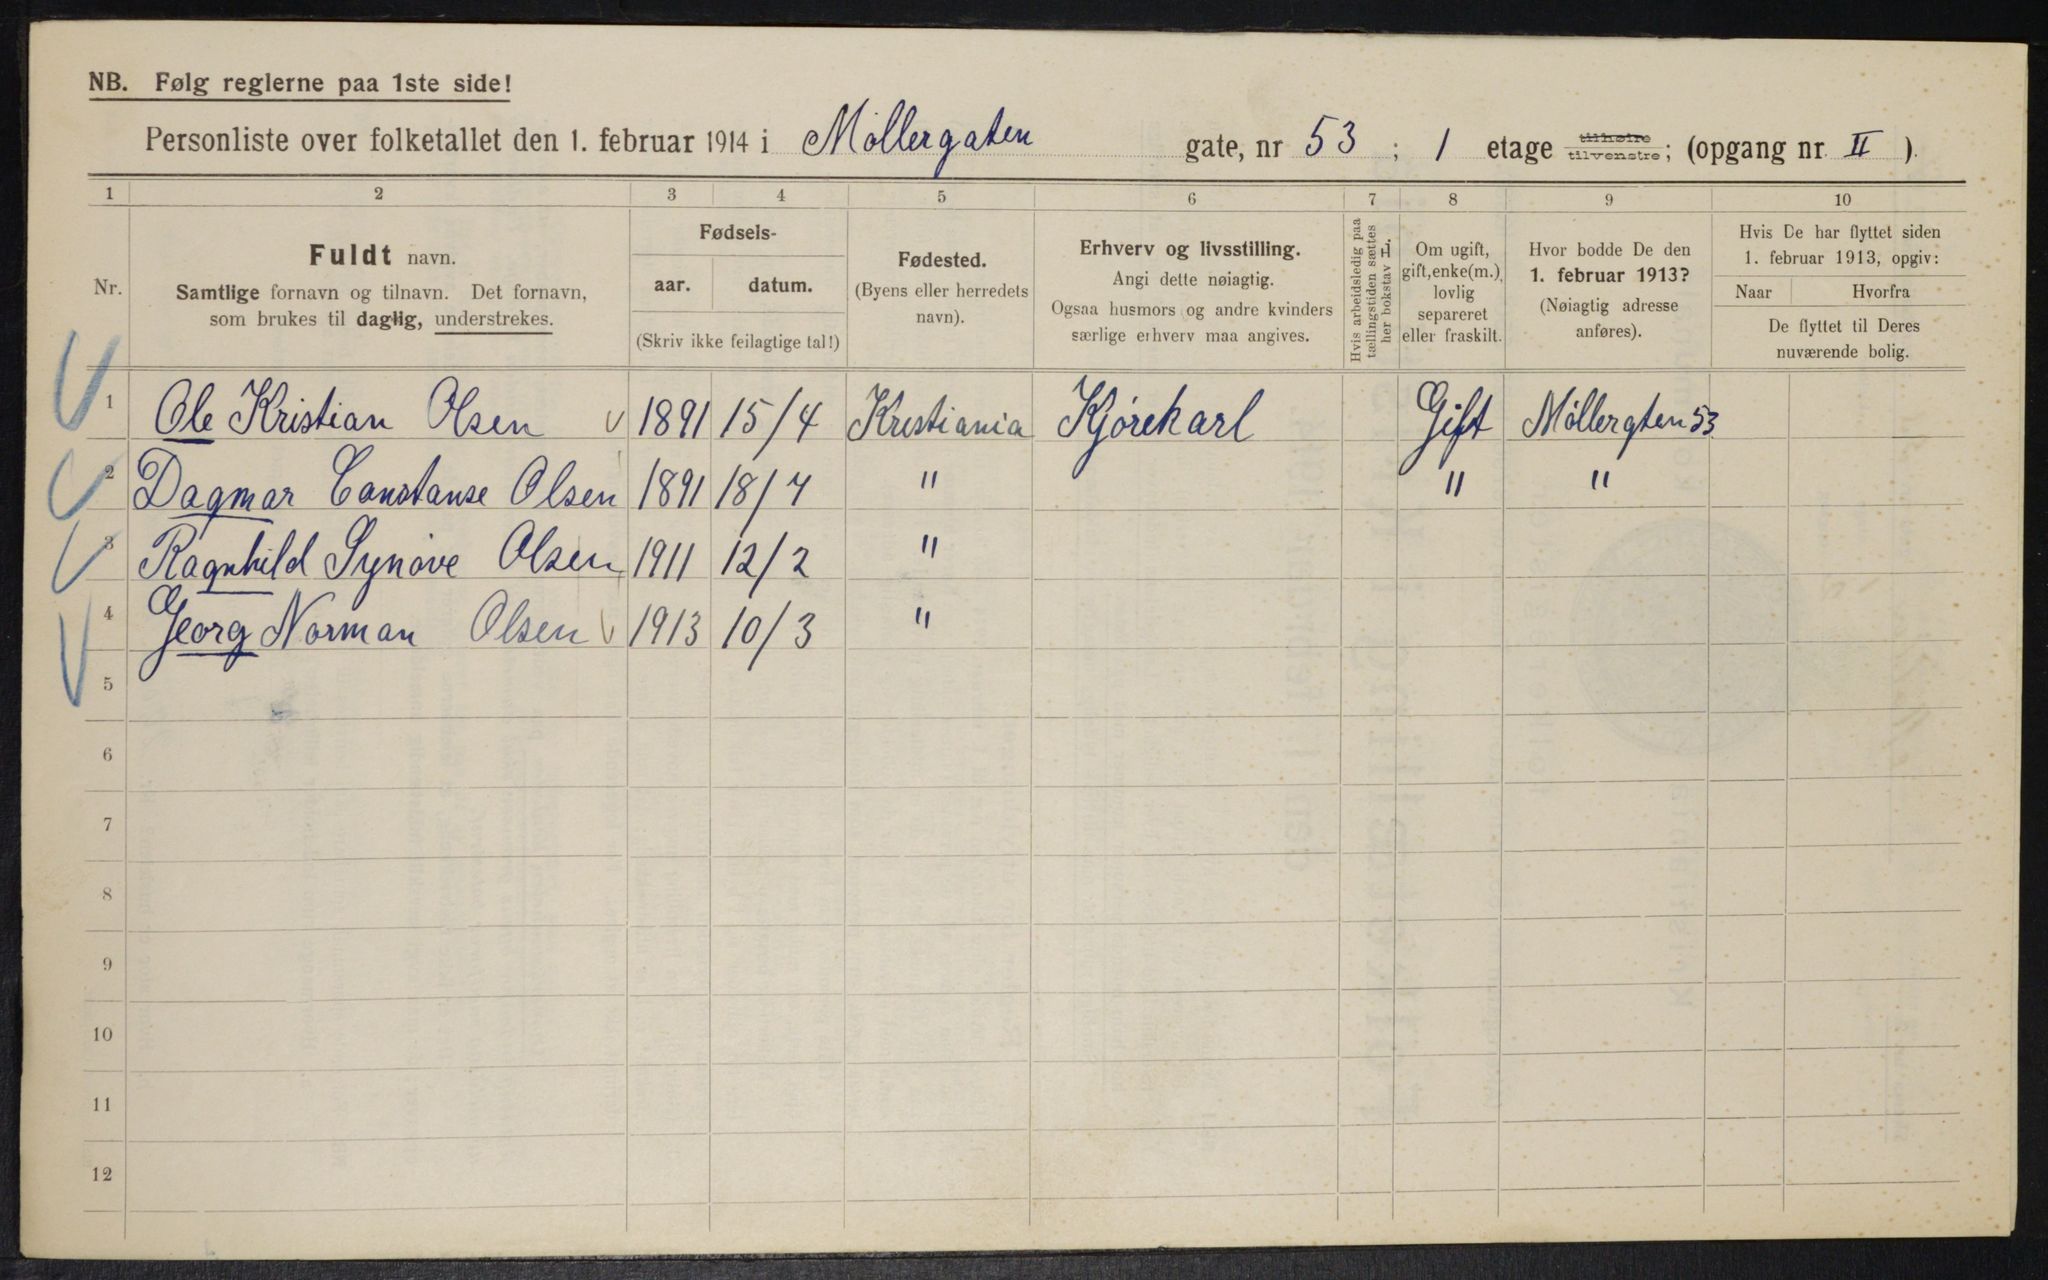 NB. Følg reglerne paa 1ste side!
Personliste over folketallet den 1. februar 1914 i Möllergaten gate, nr 53 ; 1 etage tilhøire tilvenstre; (opgang nr. II ).
1 2 3 4 5 6 7 8 9 10
Nr.
Fuldt navn.
Samtlige fornavn og tilnavn. Det fornavn,
som brukes til daglig, understrekes.
Fødsels-
aar. datum.
(Skriv ikke feilagtige tal!)
Fødested.
(Byens eller herredets
navn).
Erhverv og livsstilling.
Angi dette nøiagtig.
Ogsaa husmors og andre kvinders
særlige erhverv maa angives.
Hvis arbeidsledig paa
tællingstiden sættes
her bokstav L.
Om ugift,
gift, enke(m.),
lovlig
separeret
eller fraskilt.
Hvor bodde De den
1. februar 1913?
(Nøiagtig adresse
anføres).
Hvis De har flyttet siden
1. februar 1913, opgiv:
Naar Hvorfra
De flyttet til Deres
nuværende bolig.
1 Ole Kristian Olsen 1891 15/4 Krestiania Kjörekarl Gift Möllergten 53
2 Dagmar Constanse Olsen 1891 18/7 " " "
3 Ragnhild Synöve Olsen 1911 12/2 "
4 Georg Norman Olsen 1913 10/3 "
5
6
7
8
9
10
11
12